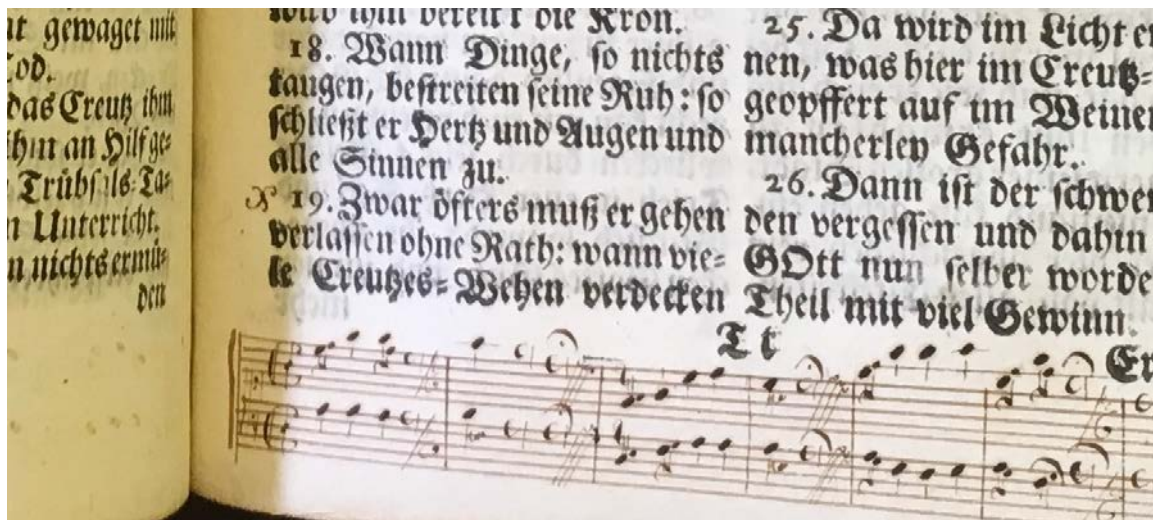 it gewaget mit
Tod.
das Creutz ihm
ihm an Hilf ge-
Trübsals-Ta-
n Unterricht.
n nichts ermü-
den
wird ihm bereit't die Kron.
18. Wann Dinge, so nichts
taugen, bestreiten seine Ruh: so
schließt er Hertz und Augen und
alle Sinnen zu.
19. Zwar öfters muß er gehen
verlassen ohne Rath: wann vie-
le Creutzes-Wehen verdecken
25. Da wird im Licht er
nen, was hier im Creutz-
geopffert auf im Weinen
mancherley Gefahr.
26. Dann ist der schwer
den vergessen und dahin
GOtt nun selber worde
Theil mit viel Gewinn.
T t
Er